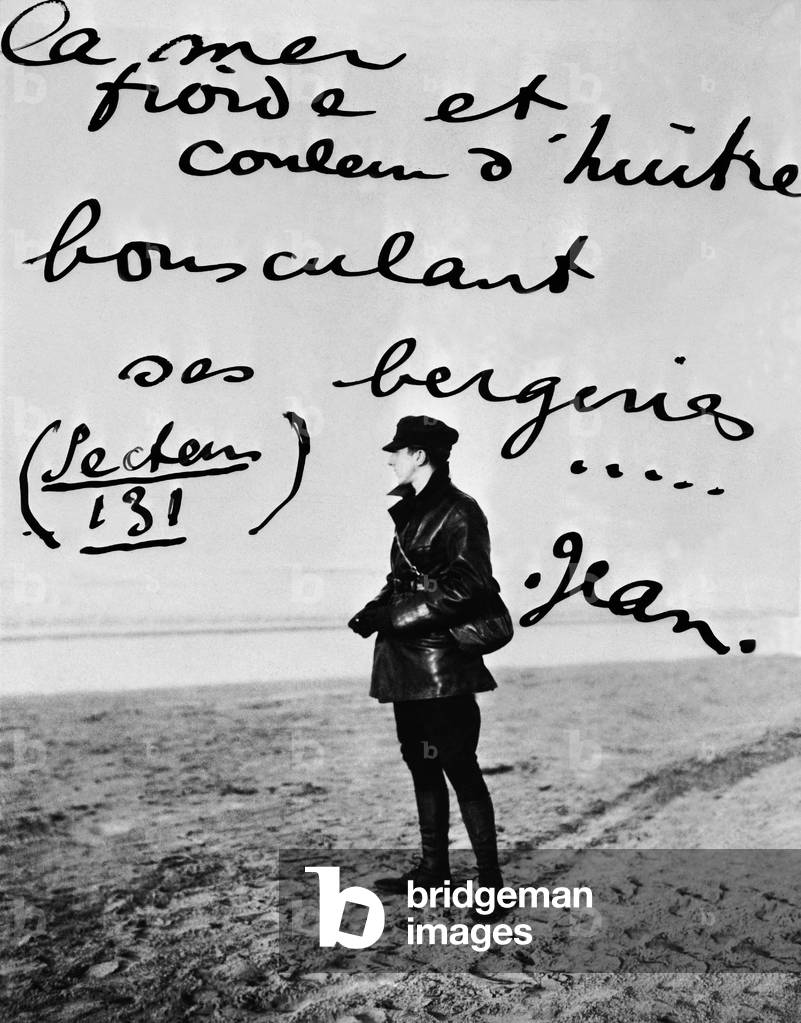 la mer
froide et
couleur d'huître
bousculant
ses bergeries
.....
(Secteur
131)
Jean.
bridgeman
images